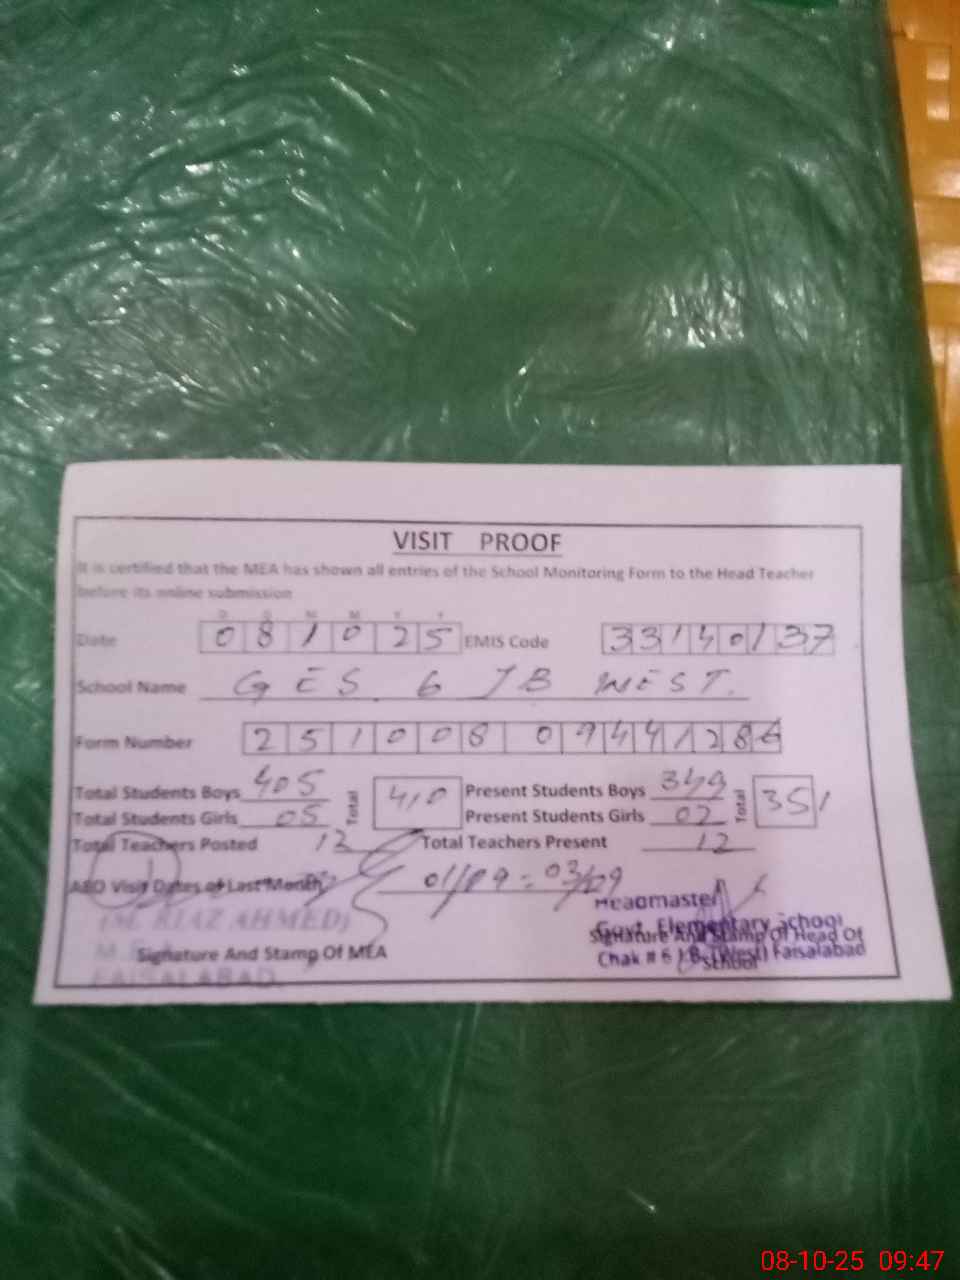 VISIT PROOF
It is certified that the MEA has shown all entries of the School Monitoring Form to the Head Teacher
before its online submission
D D M M Y Y
Date 081025 EMIS Code 33140137
School Name GES 6 JB WEST.
Form Number 251008 09441286
Total Students Boys 405 Total 410 Present Students Boys 349 Total 351
Total Students Girls 05 Present Students Girls 02
Total Teachers Posted 12 Total Teachers Present 12
AEO Visit Dates of Last Month 01/09 - 03/09
(M. RIAZ AHMED)
Signature And Stamp Of MEA
FAISALABAD.
Headmaster
Govt. Elementary School
Signature And Stamp Of Head Of
Chak # 6 J.B. (West) Faisalabad
School
08-10-25 09:47